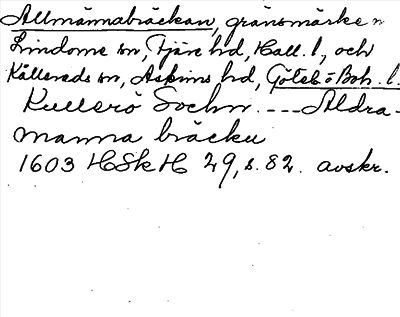 Allmännabräckan, gränsmärke n
Lindome sn, Fjäre hd, Hall. l, och
Kållereds sn, Askims hd, Göteb o Boh. l.
Kullerö Sochn --- Aldra-
manna bräcku
1603 HSkH 29, s. 82. avskr.